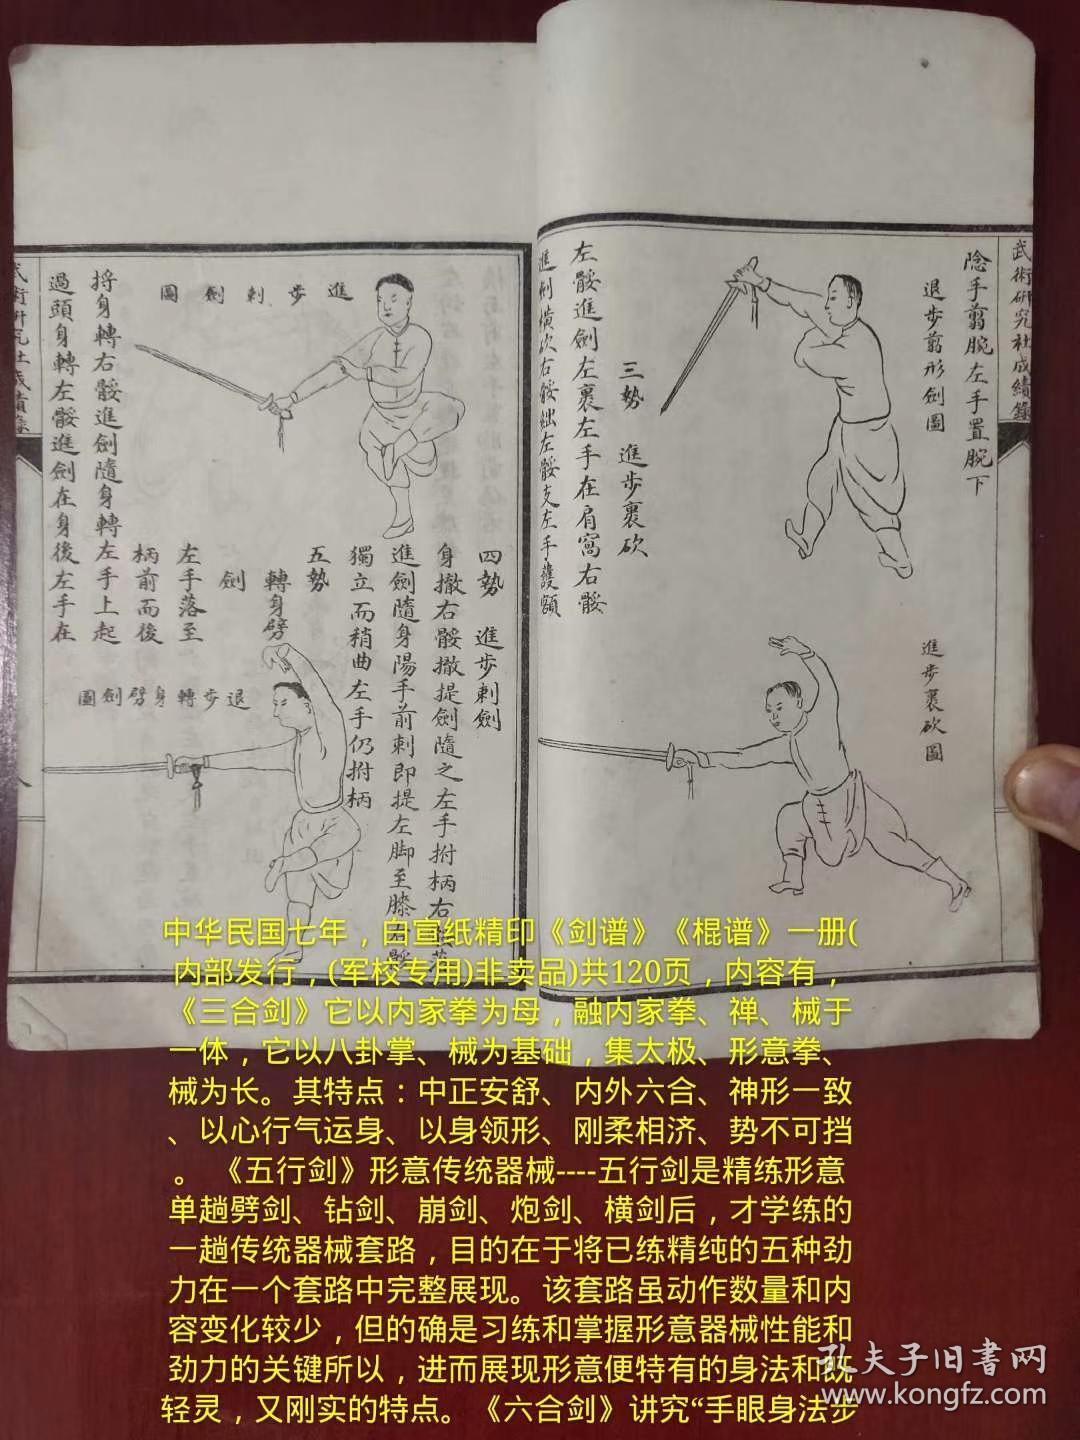 武術研究社成績錄
陰手剪腕左手置腕下
退步剪形劍圖
進步裹砍圖
三勢 進步裹砍
左骽進劍左裹左手在肩窩右骽
進劍橫砍右骽絀左骽支左手護額
四勢 進步刺劍
身撤右骽撤提劍隨之左手拊柄右
進劍隨身陽手前刺即提左脚至膝右骽
獨立而稍曲左手仍拊柄
五勢 轉身劈劍
左手落至
柄前而後
捋身轉右骽進劍隨身轉左手上起
過頭身轉左骽進劍在身後左手在
圖劍刺步進
圖劍劈身轉步退
武術研究社成績錄
中华民国七年，白宣纸精印《剑谱》《棍谱》一册(
内部发行，(军校专用)非卖品)共120页，内容有，
《三合剑》它以内家拳为母，融内家拳、禅、械于
一体，它以八卦掌、械为基础，集太极、形意拳、
械为长。其特点：中正安舒、内外六合、神形一致
、以心行气运身、以身领形、刚柔相济、势不可挡
。 《五行剑》形意传统器械----五行剑是精练形意
单趟劈剑、钻剑、崩剑、炮剑、横剑后，才学练的
一趟传统器械套路，目的在于将已练精纯的五种劲
力在一个套路中完整展现。该套路虽动作数量和内
容变化较少，但的确是习练和掌握形意器械性能和
劲力的关键所以，进而展现形意便特有的身法和既
轻灵，又刚实的特点。《六合剑》讲究“手眼身法步
孔夫子旧书网
www.kongfz.com